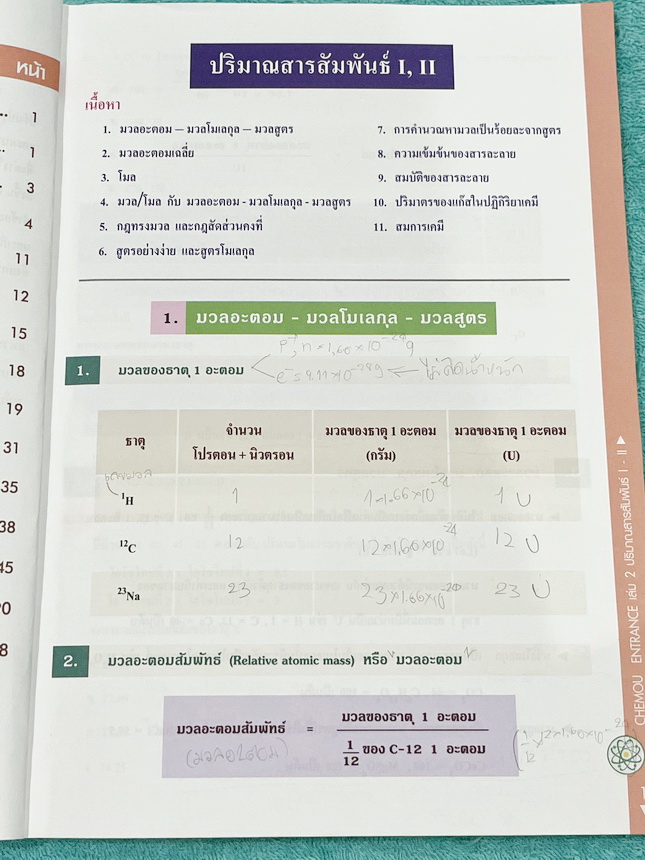 หน้า
1
1
3
4
11
12
15
18
19
31
35
38
45
8
ปริมาณสารสัมพันธ์ I, II
เนื้อหา
1. มวลอะตอม – มวลโมเลกุล – มวลสูตร
2. มวลอะตอมเฉลี่ย
3. โมล
4. มวล/โมล กับ มวลอะตอม - มวลโมเลกุล - มวลสูตร
5. กฎทรงมวล และกฎสัดส่วนคงที่
6. สูตรอย่างง่าย และสูตรโมเลกุล
7. การคำนวณหามวลเป็นร้อยละจากสูตร
8. ความเข้มข้นของสารละลาย
9. สมบัติของสารละลาย
10. ปริมาตรของแก๊สในปฏิกิริยาเคมี
11. สมการเคมี
1. มวลอะตอม - มวลโมเลกุล - มวลสูตร
1. มวลของธาตุ 1 อะตอม
ไม่คิดน้ำหนัก
ธาตุ จำนวน โปรตอน + นิวตรอน มวลของธาตุ 1 อะตอม (กรัม) มวลของธาตุ 1 อะตอม (U)
เลขมวล
¹H 1 1×1.66×10⁻²⁴ 1 U
¹²C 12 12×1.66×10⁻²⁴ 12 U
²³Na 23 23×1.66×10 23 U
2. มวลอะตอมสัมพัทธ์ (Relative atomic mass) หรือ "มวลอะตอม"
มวลอะตอมสัมพัทธ์ = มวลของธาตุ 1 อะตอม
1/12 ของ C-12 1 อะตอม
(มวลอะตอม)
CHEMOU ENTRANCE เล่ม 2 ปริมาณสารสัมพันธ์ I - II